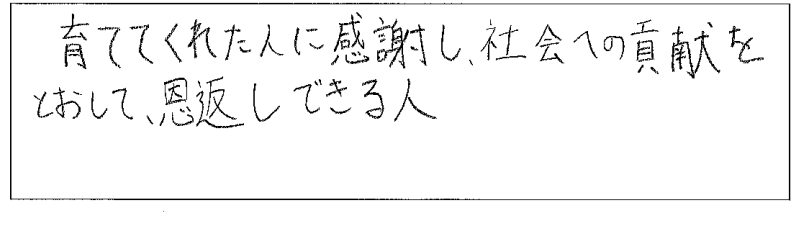 育ててくれた人に感謝し、社会への貢献を
とおして、恩返しできる人